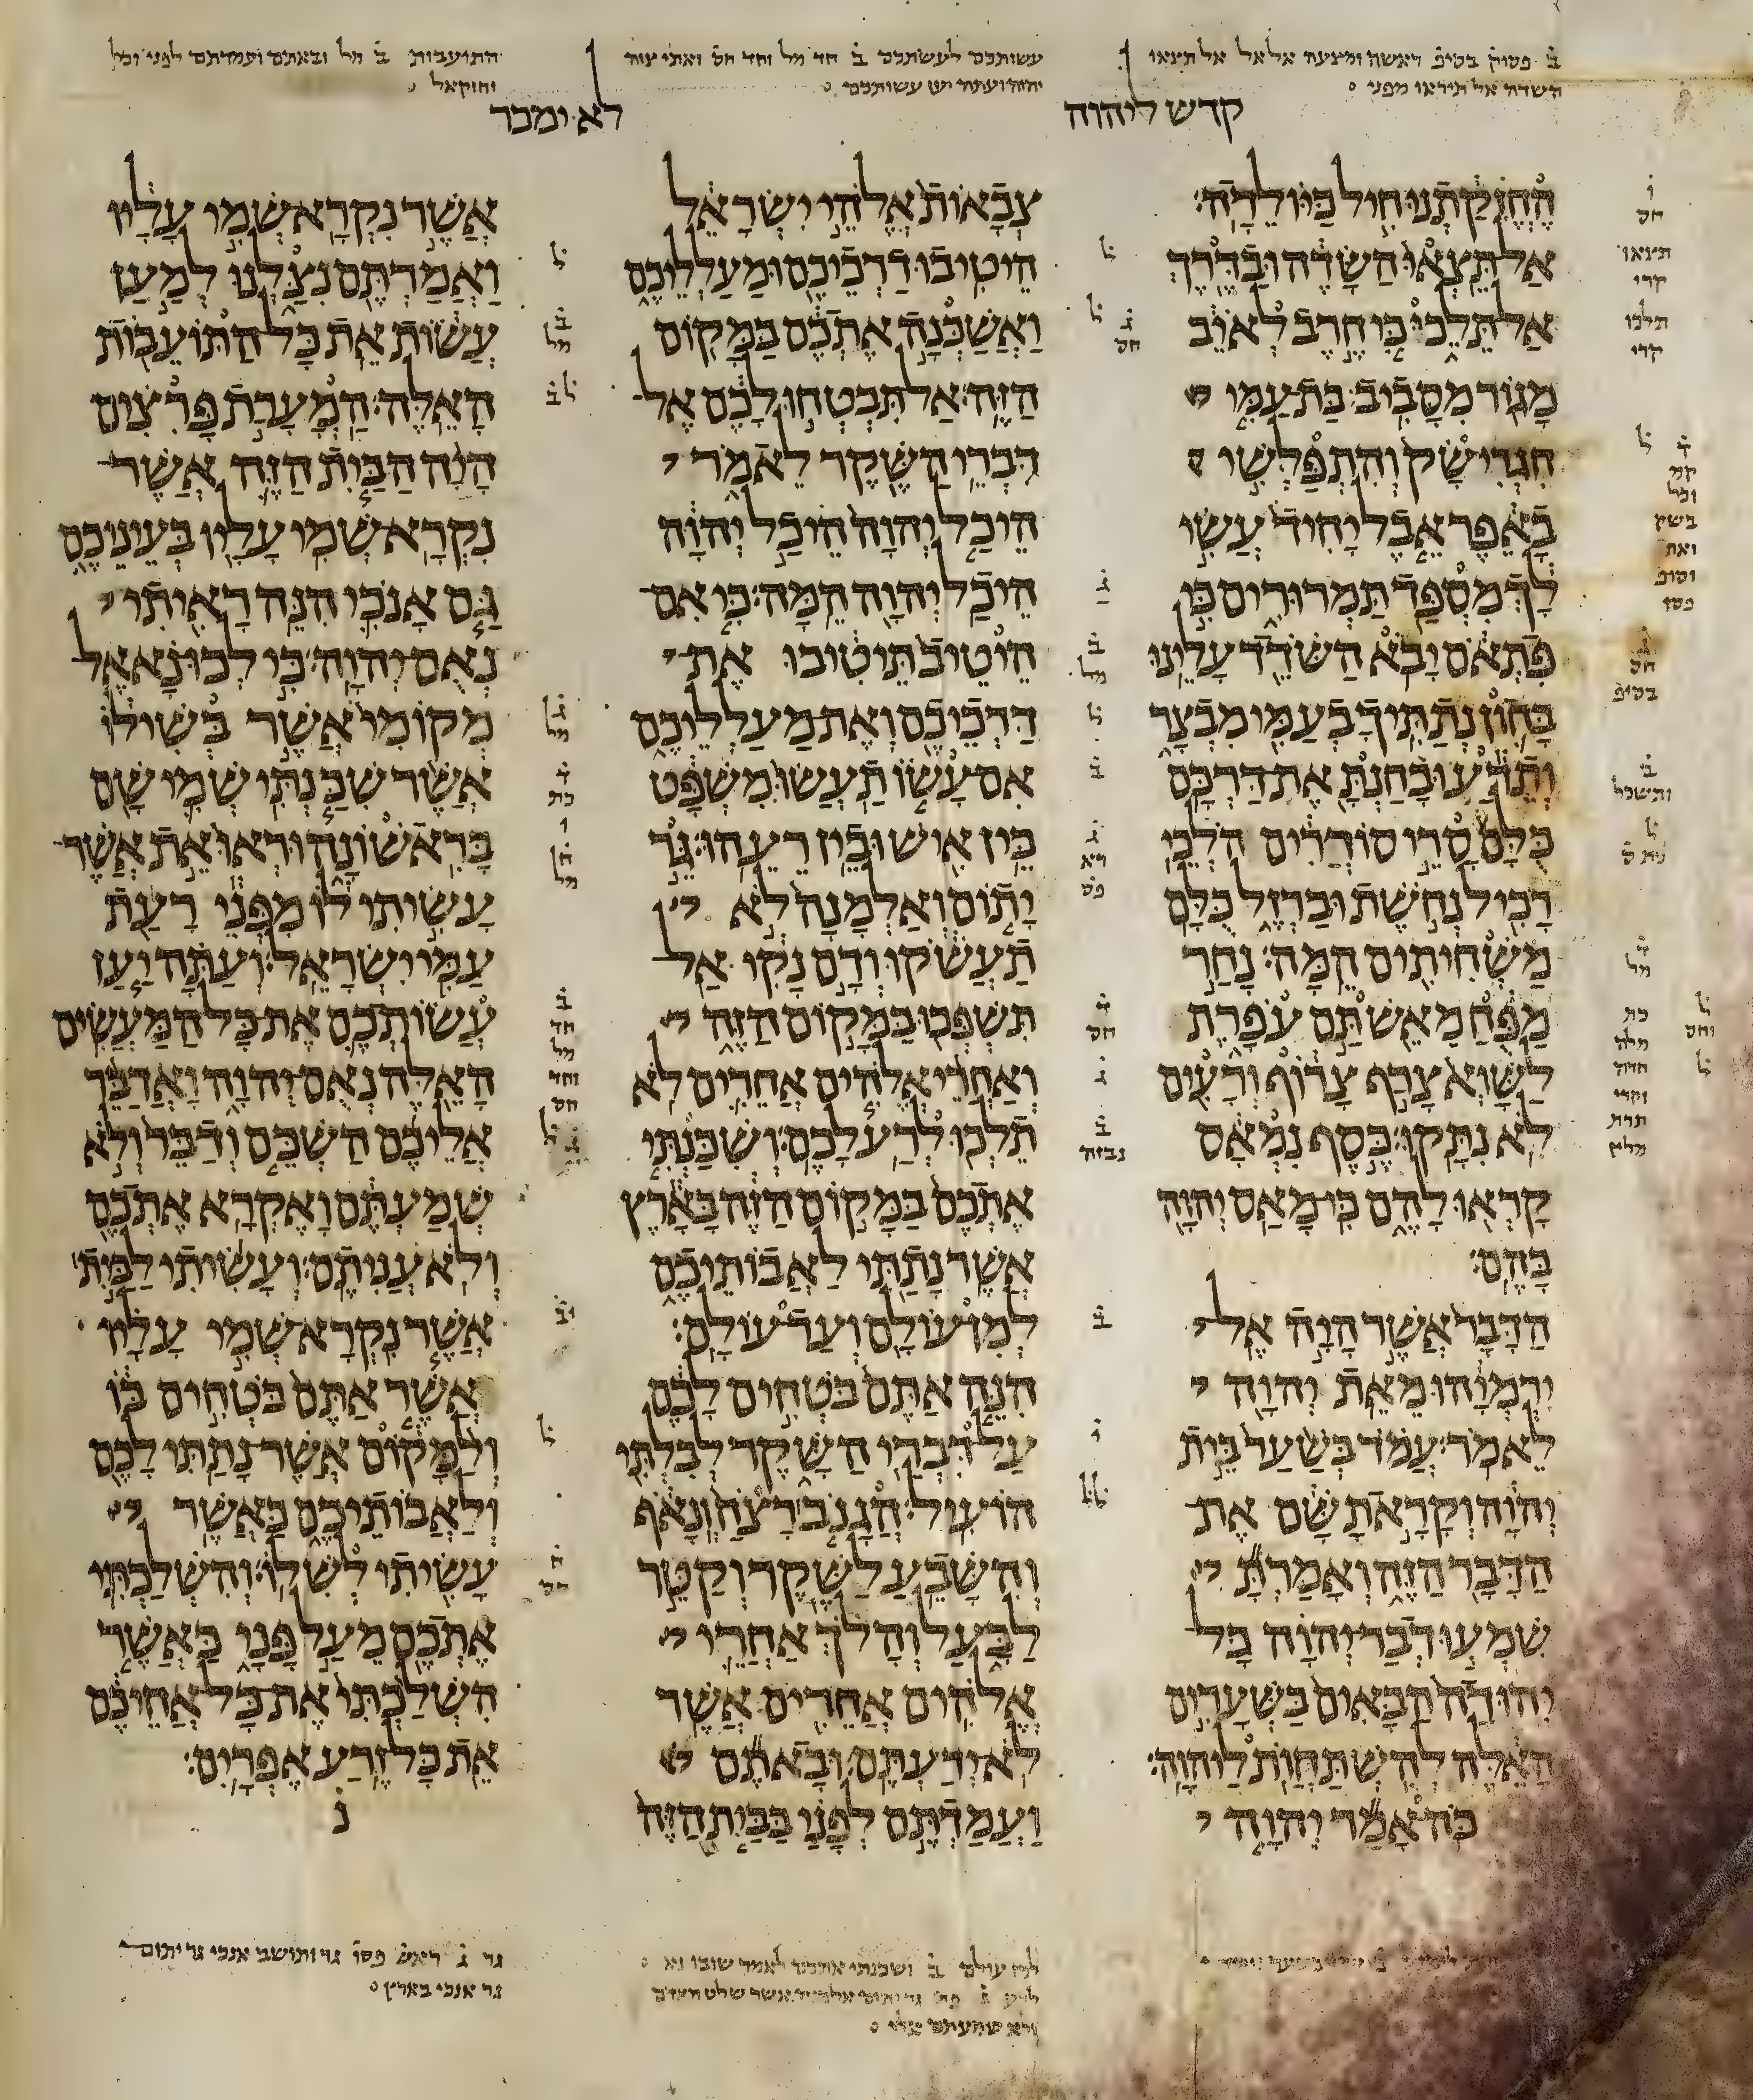 ב̇ פסוק בסיפ̇ ראשה ומצעה אל אל אל תצאו
השדה אל תיראו מפני
עשותכם לעשתכם ב̇ חד מל וחד חס ואתי צוה
יהוה ועתה יען עשותכם
התועבות ב̇ מל ובאתם ועמדתם לפני וכל
יחזקאל
קדש ליהוה
לא ימכר
הֶחֱזִיקַתְנוּ חִיל כַּיּוֹלֵדָה׃
אַל תֵּצְאוּ הַשָּׂדֶה וּבַדֶּרֶךְ
אַל תֵּלֵכוּ כִּי חֶרֶב לְאֹיֵב
מָגוֹר מִסָּבִיב׃ בַּת עַמִּי
חִגְרִי שָׂק וְהִתְפַּלְּשִׁי
בָאֵפֶר אֵבֶל יָחִיד עֲשִׂי
לָךְ מִסְפַּד תַּמְרוּרִים כִּי
פִתְאֹם יָבֹא הַשֹּׁדֵד עָלֵינוּ׃
בָּחוֹן נְתַתִּיךָ בְעַמִּי מִבְצָר
וְתֵדַע וּבָחַנְתָּ אֶת דַּרְכָּם׃
כֻּלָּם סָרֵי סוֹרְרִים הֹלְכֵי
רָכִיל נְחֹשֶׁת וּבַרְזֶל כֻּלָּם
מַשְׁחִיתִים הֵמָּה׃ נָחַר
מַפֻּחַ מֵאֵשְׁתַּם עֹפָרֶת
לַשָּׁוְא צָרַף צָרוֹף וְרָעִים
לֹא נִתָּקוּ׃ כֶּסֶף נִמְאָס
קָרְאוּ לָהֶם כִּי מָאַס יְהוָה
בָּהֶם׃
הַדָּבָר אֲשֶׁר הָיָה אֶל
יִרְמְיָהוּ מֵאֵת יְהוָה
לֵאמֹר׃ עֲמֹד בְּשַׁעַר בֵּית
יְהוָה וְקָרָאתָ שָּׁם אֶת
הַדָּבָר הַזֶּה וְאָמַרְתָּ
שִׁמְעוּ דְבַר יְהוָה כָּל
יְהוּדָה הַבָּאִים בַּשְּׁעָרִים
הָאֵלֶּה לְהִשְׁתַּחֲוֺת לַיהוָה׃
כֹּה אָמַר יְהוָה
צְבָאוֹת אֱלֹהֵי יִשְׂרָאֵל
הֵיטִיבוּ דַרְכֵיכֶם וּמַעַלְלֵיכֶם
וַאֲשַׁכְּנָה אֶתְכֶם בַּמָּקוֹם
הַזֶּה׃ אַל תִּבְטְחוּ לָכֶם אֶל
דִּבְרֵי הַשֶּׁקֶר לֵאמֹר
הֵיכַל יְהוָה הֵיכַל יְהוָה
הֵיכַל יְהוָה הֵמָּה׃ כִּי אִם
הֵיטֵיב תֵּיטִיבוּ אֶת
דַּרְכֵיכֶם וְאֶת מַעַלְלֵיכֶם
אִם עָשׂוֹ תַעֲשׂוּ מִשְׁפָּט
בֵּין אִישׁ וּבֵין רֵעֵהוּ׃ גֵּר
יָתוֹם וְאַלְמָנָה לֹא
תַעֲשֹׁקוּ וְדָם נָקִי אַל
תִּשְׁפְּכוּ בַּמָּקוֹם הַזֶּה
וְאַחֲרֵי אֱלֹהִים אֲחֵרִים לֹא
תֵלְכוּ לְרַע לָכֶם׃ וְשִׁכַּנְתִּי
אֶתְכֶם בַּמָּקוֹם הַזֶּה בָּאָרֶץ
אֲשֶׁר נָתַתִּי לַאֲבוֹתֵיכֶם
לְמִן עוֹלָם וְעַד עוֹלָם׃
הִנֵּה אַתֶּם בֹּטְחִים לָכֶם
עַל דִּבְרֵי הַשָּׁקֶר לְבִלְתִּי
הוֹעִיל׃ הֲגָנֹב רָצֹחַ וְנָאֹף
וְהִשָּׁבֵעַ לַשֶּׁקֶר וְקַטֵּר
לַבָּעַל וְהָלֹךְ אַחֲרֵי
אֱלֹהִים אֲחֵרִים אֲשֶׁר
לֹא יְדַעְתֶּם׃ וּבָאתֶם
וַעֲמַדְתֶּם לְפָנַי בַּבַּיִת הַזֶּה
אֲשֶׁר נִקְרָא שְׁמִי עָלָיו
וַאֲמַרְתֶּם נִצַּלְנוּ לְמַעַן
עֲשׂוֹת אֵת כָּל הַתּוֹעֵבוֹת
הָאֵלֶּה׃ הַמְעָרַת פָּרִצִים
הָיָה הַבַּיִת הַזֶּה אֲשֶׁר
נִקְרָא שְׁמִי עָלָיו בְּעֵינֵיכֶם
גַּם אָנֹכִי הִנֵּה רָאִיתִי
נְאֻם יְהוָה׃ כִּי לְכוּ נָא אֶל
מְקוֹמִי אֲשֶׁר בְּשִׁילוֹ
אֲשֶׁר שִׁכַּנְתִּי שְׁמִי שָׁם
בָּרִאשׁוֹנָה וּרְאוּ אֵת אֲשֶׁר
עָשִׂיתִי לוֹ מִפְּנֵי רָעַת
עַמִּי יִשְׂרָאֵל׃ וְעַתָּה יַעַן
עֲשׂוֹתְכֶם אֶת כָּל הַמַּעֲשִׂים
הָאֵלֶּה נְאֻם יְהוָה וָאֲדַבֵּר
אֲלֵיכֶם הַשְׁכֵּם וְדַבֵּר וְלֹא
שְׁמַעְתֶּם וָאֶקְרָא אֶתְכֶם
וְלֹא עֲנִיתֶם׃ וְעָשִׂיתִי לַבַּיִת
אֲשֶׁר נִקְרָא שְׁמִי עָלָיו
אֲשֶׁר אַתֶּם בֹּטְחִים בּוֹ
וְלַמָּקוֹם אֲשֶׁר נָתַתִּי לָכֶם
וְלַאֲבוֹתֵיכֶם כַּאֲשֶׁר
עָשִׂיתִי לְשִׁלוֹ׃ וְהִשְׁלַכְתִּי
אֶתְכֶם מֵעַל פָּנָי כַּאֲשֶׁר
הִשְׁלַכְתִּי אֶת כָּל אֲחֵיכֶם
אֵת כָּל זֶרַע אֶפְרָיִם׃
למן עולם ב̇ ושכנתי אתכם לאמר שובו נא
ולא שמעתם אלי
גר ג̇ ראש̇ פסו̇ גר ותושב אנכי גר יתום
גר אנכי בארץ